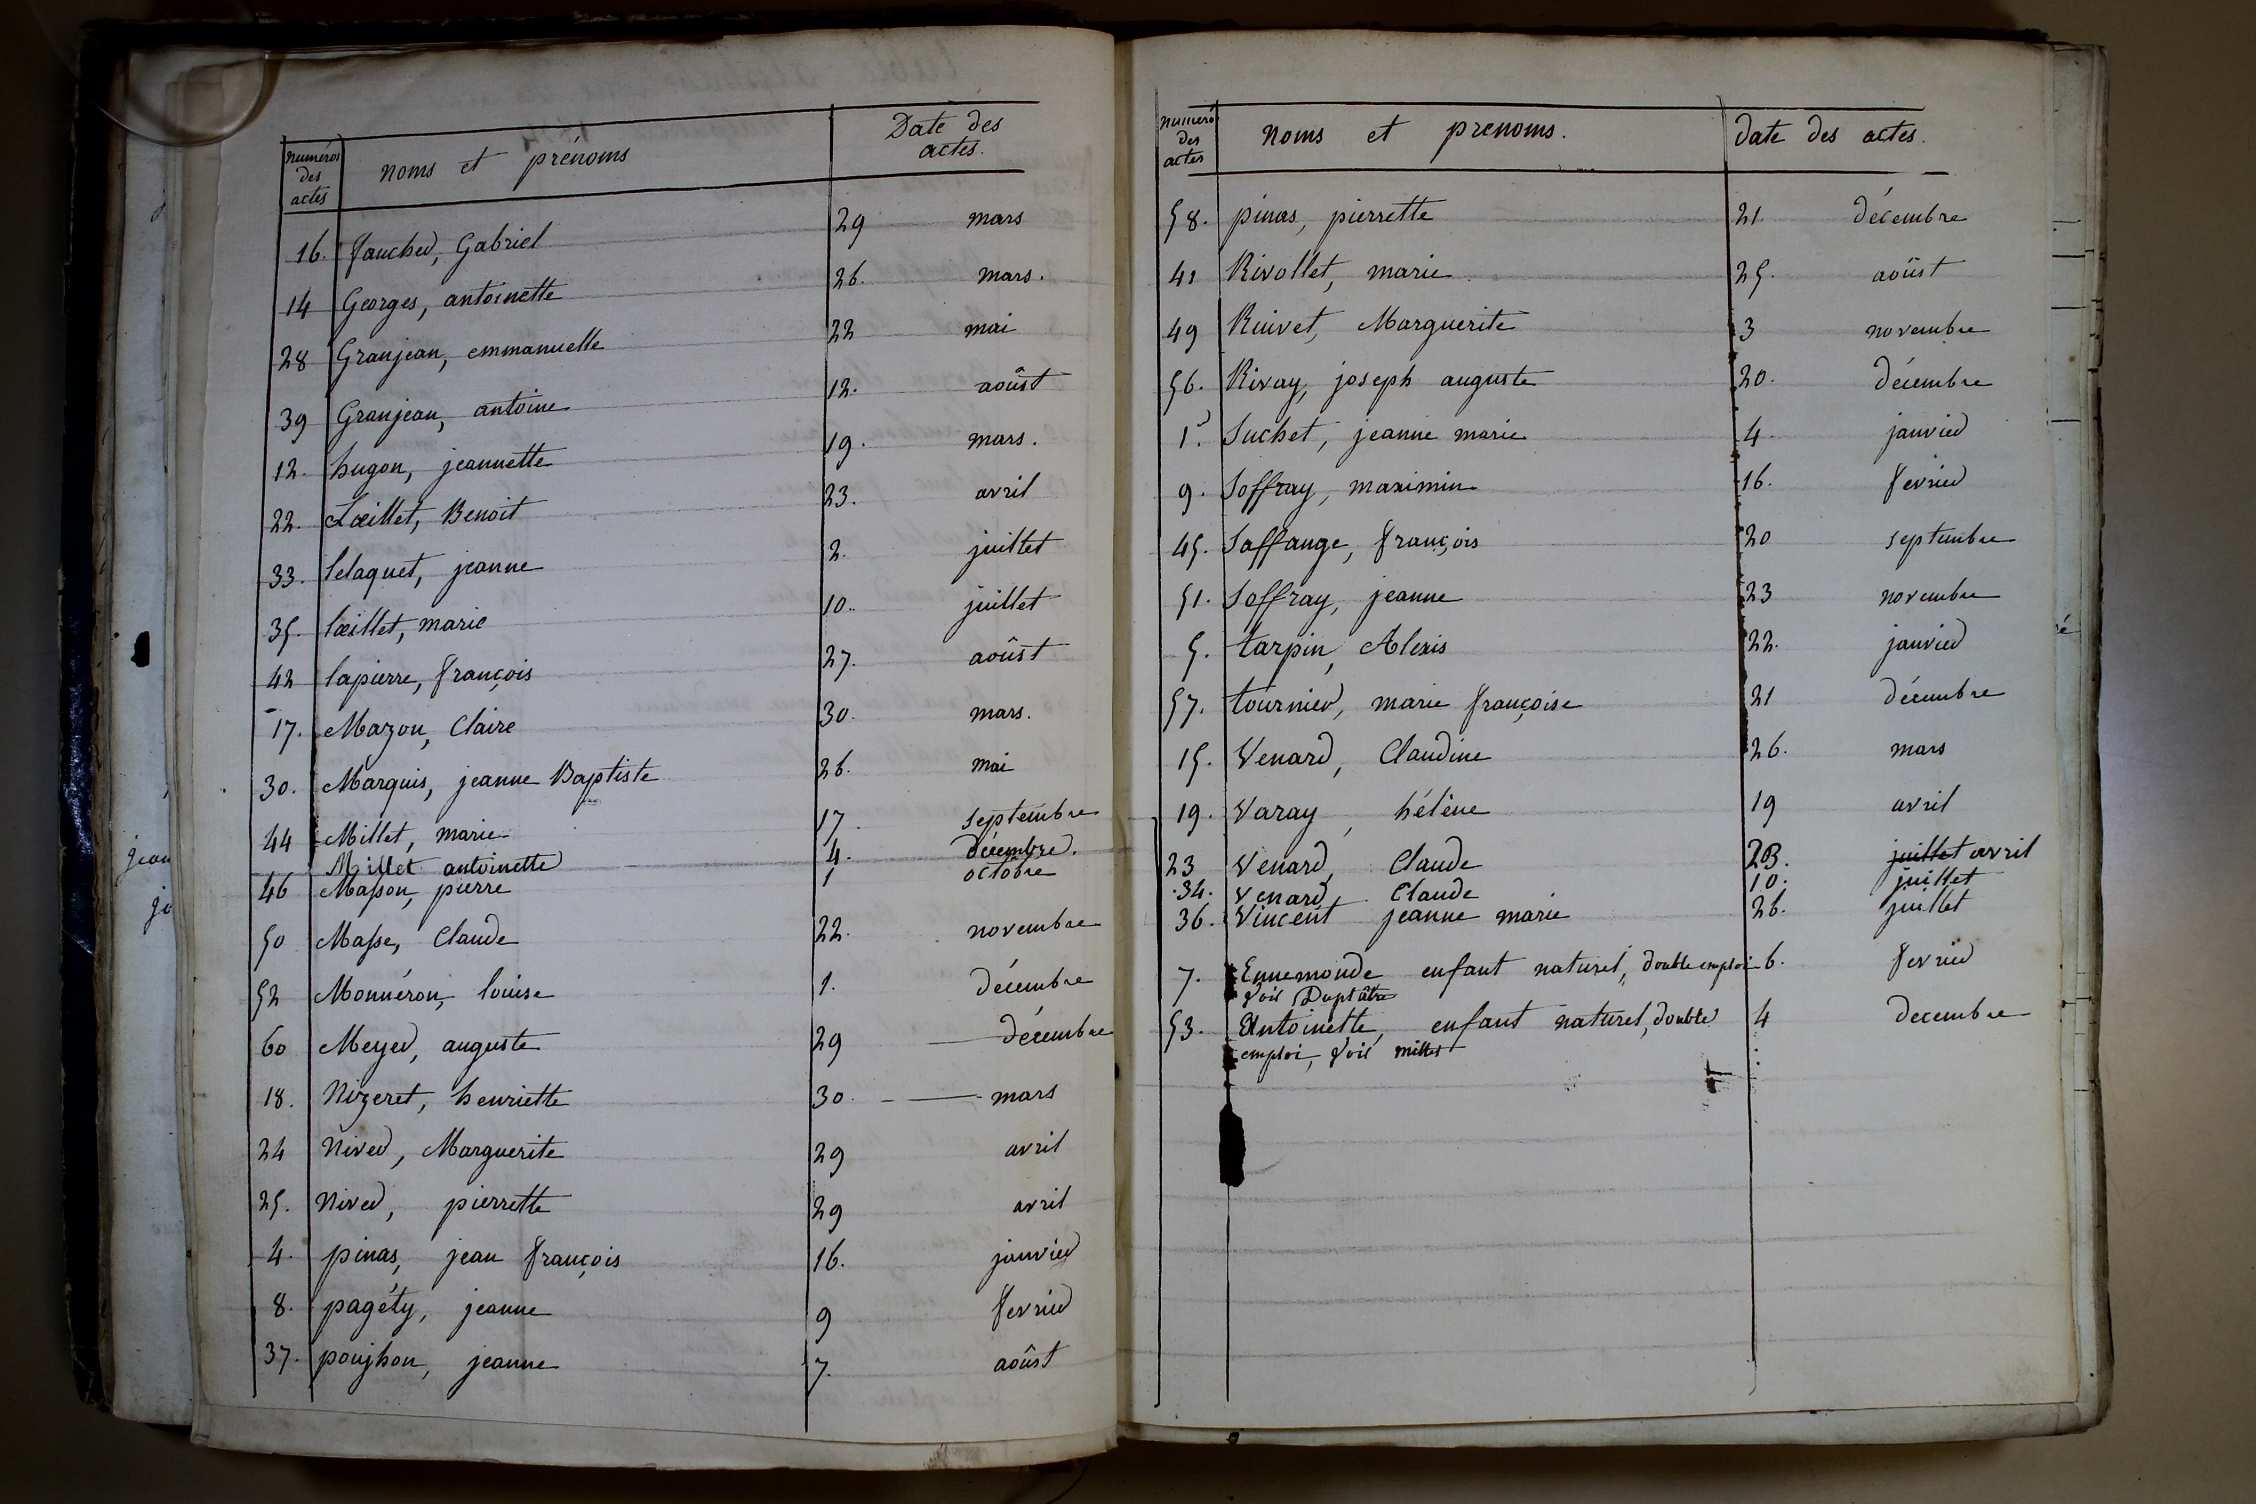 numéros des actes noms et prénoms Date des actes.
16. faucher, Gabriel 29 mars
14 Georges, antoinette 26. mars.
28 Granjean, emmanuelle 22 mai
39 Granjean, antoine 12. août
12. hugon, jeannette 19. mars.
22. Lœillet, Benoit 23. avril
33. lelaquet, jeanne 2. juillet
35. lœillet, marie 10.. juillet
42 lapierre, françois 27. août
17. Mazon, Claire 30. mars.
30. Marquis, jeanne Baptiste 26. mai
44 Millet, marie 17. septembre
Millet antoinette 4. décembre.
46 Masson, pierre 1 octobre
50 Masse, Claude 22. novembre
52 Monnéron, louise 1. décembre
60 Meyer, auguste 29 décembre
18. Nizeret, henriette 30. mars
24 Niver, Marguerite 29 avril
25. Niver, pierrette 29 avril
4. pinas, jean françois 16. janvier
8. pagéty, jeanne 9 fevrier
37. poujhon, jeanne 7. août
numero des actes noms et prenoms. date des actes.
58. pinas, pierrette 21. décembre
41 Rivollet, marie 25. août
49 Ruivet, Marguerite 3 novembre
56. Rivay, joseph auguste 20. décembre
1. Suchet, jeanne marie 4. janvier
9. Soffray, maximin 16. fevrier
45. Saffange, françois 20 septembre
51. Soffray, jeanne 23 novembre
5. tarpin, Alexis 22. janvier
57. tournier, marie françoise 21 décembre
15. Venard, Claudine 26. mars
19. Varay, hélène 19 avril
23 Venard, Claude 23. juillet avril
34. Venard Claude 10. juillet
36. Vincent jeanne marie 26. juillet
7. Ennemonde enfant naturel, double emploi 6. fevrier
Voir
53. Antoinette, enfant naturel, double 4 decembre
emploi, Voir millet